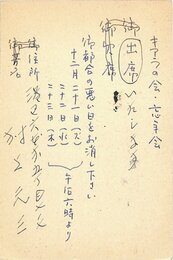 きさらの会・忘年会
御出席いたします
御欠席
御都合の悪い日をお消し下さい
十二月二十一日(火)
二十二日(水)
二十三日(木)
午后六時より
御住所
御芳名
村上元三